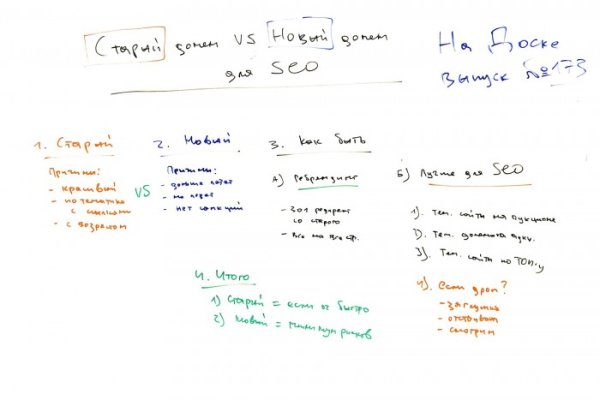 Старый домен VS Новый домен
для SEO
На Доске
выпуск №173
1. Старый
Причины:
- красивый
- по тематике
с ссылками
- с возрастом
VS
2. Новый
Причины:
- дольше
- нет санкций
3. Как быть
А) Ребрендинг
- 301 редирект
со старого
- все на все стр.
Б) Лучше для SEO
1). Тем. сайты на аукционе
2). Тем. домены
3). Тем. сайты по ТОП-у
4). Если дроп?
- заглушка
- отстоять
- смотрим
4. Итого
1) Старый = если ок быстро
2) Новый = минимум рисков